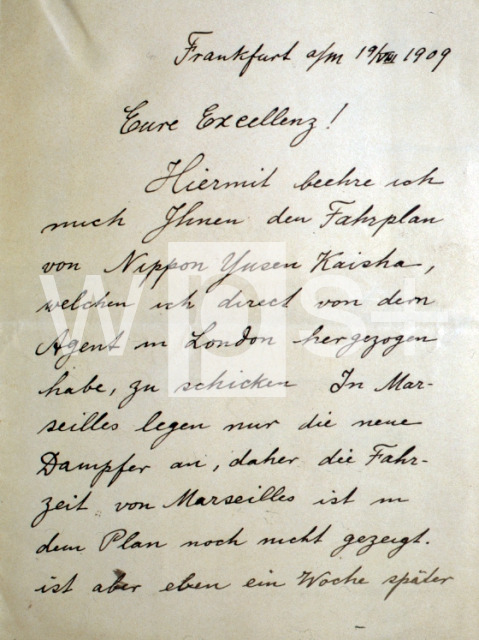 Frankfurt a/m 19/VIII 1909
Eure Excellenz!
Hiermit beehre ich
mich Ihnen den Fahrplan
von Nippon Yusen Kaisha,
welchen ich direct von dem
Agent in London hergezogen
habe, zu schicken In Mar-
seilles legen nur die neue
Dampfer an, daher die Fahr-
zeit von Marseilles ist in
dem Plan noch nicht gezeigt.
ist aber eben ein Woche später
wps+